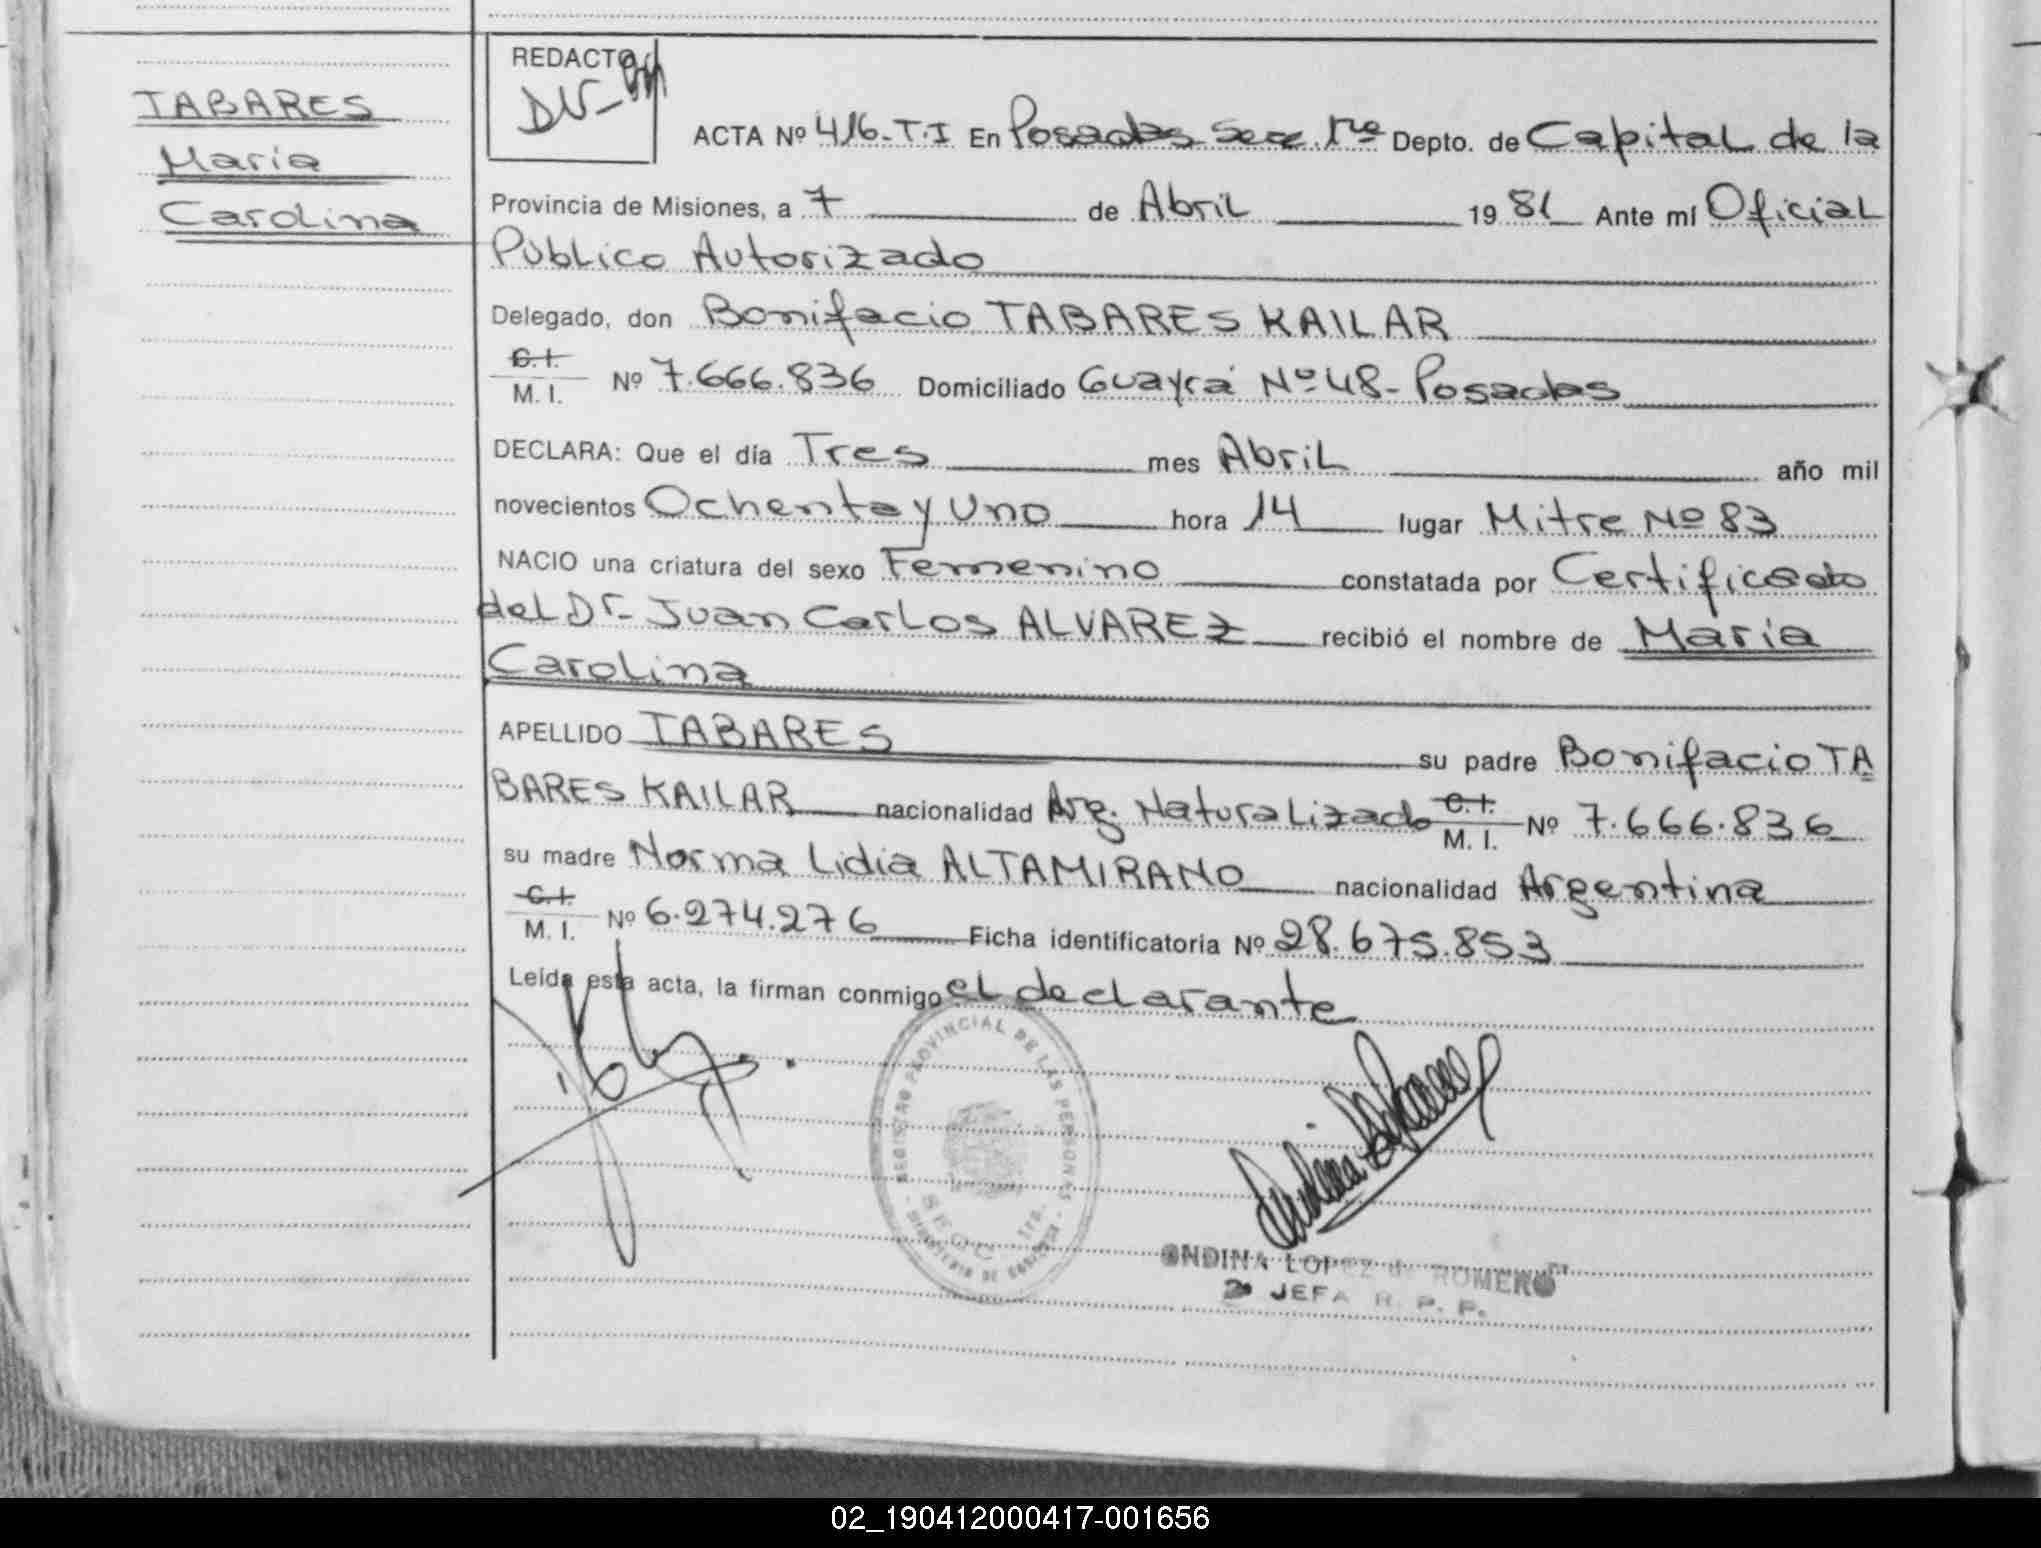 TABARES
María
Carolina
REDACTO
ACTA Nº 416-T.I En Posadas Secc. 1ra Depto. de Capital de la
Provincia de Misiones, a 7 de Abril 1981 Ante mí Oficial
Público Autorizado
Delegado, don Bonifacio TABARES KAILAR
C.I.
M. I. Nº 7.666.836 Domiciliado Guayrá Nº 48- Posadas
DECLARA: Que el día Tres mes Abril año mil
novecientos Ochenta y Uno hora 14 lugar Mitre Nº 83
NACIO una criatura del sexo Femenino constatada por Certificado
del Dr- Juan Carlos ALVAREZ recibió el nombre de María
Carolina
APELLIDO TABARES su padre Bonifacio TA
BARES KAILAR nacionalidad Arg. Naturalizado C.I. M. I. Nº 7.666.836
su madre Norma Lidia ALTAMIRANO nacionalidad Argentina
C.I.
M. I. Nº 6.274.276 Ficha identificatoria Nº 28.675.853
Leída esta acta, la firman conmigo el declarante
REGISTRO PROVINCIAL DE LAS PERSONAS
SECC. 1ra.
MINISTERIO DE GOBIERNO
ONDINA LOPEZ de ROMERO
JEFA R. P. P.
02_190412000417-001656